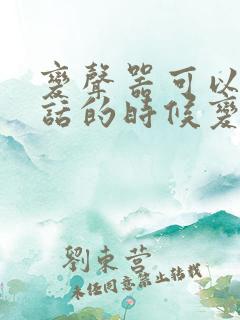 變聲器可以
話的時候變
劉東營
未經同意禁止轉載